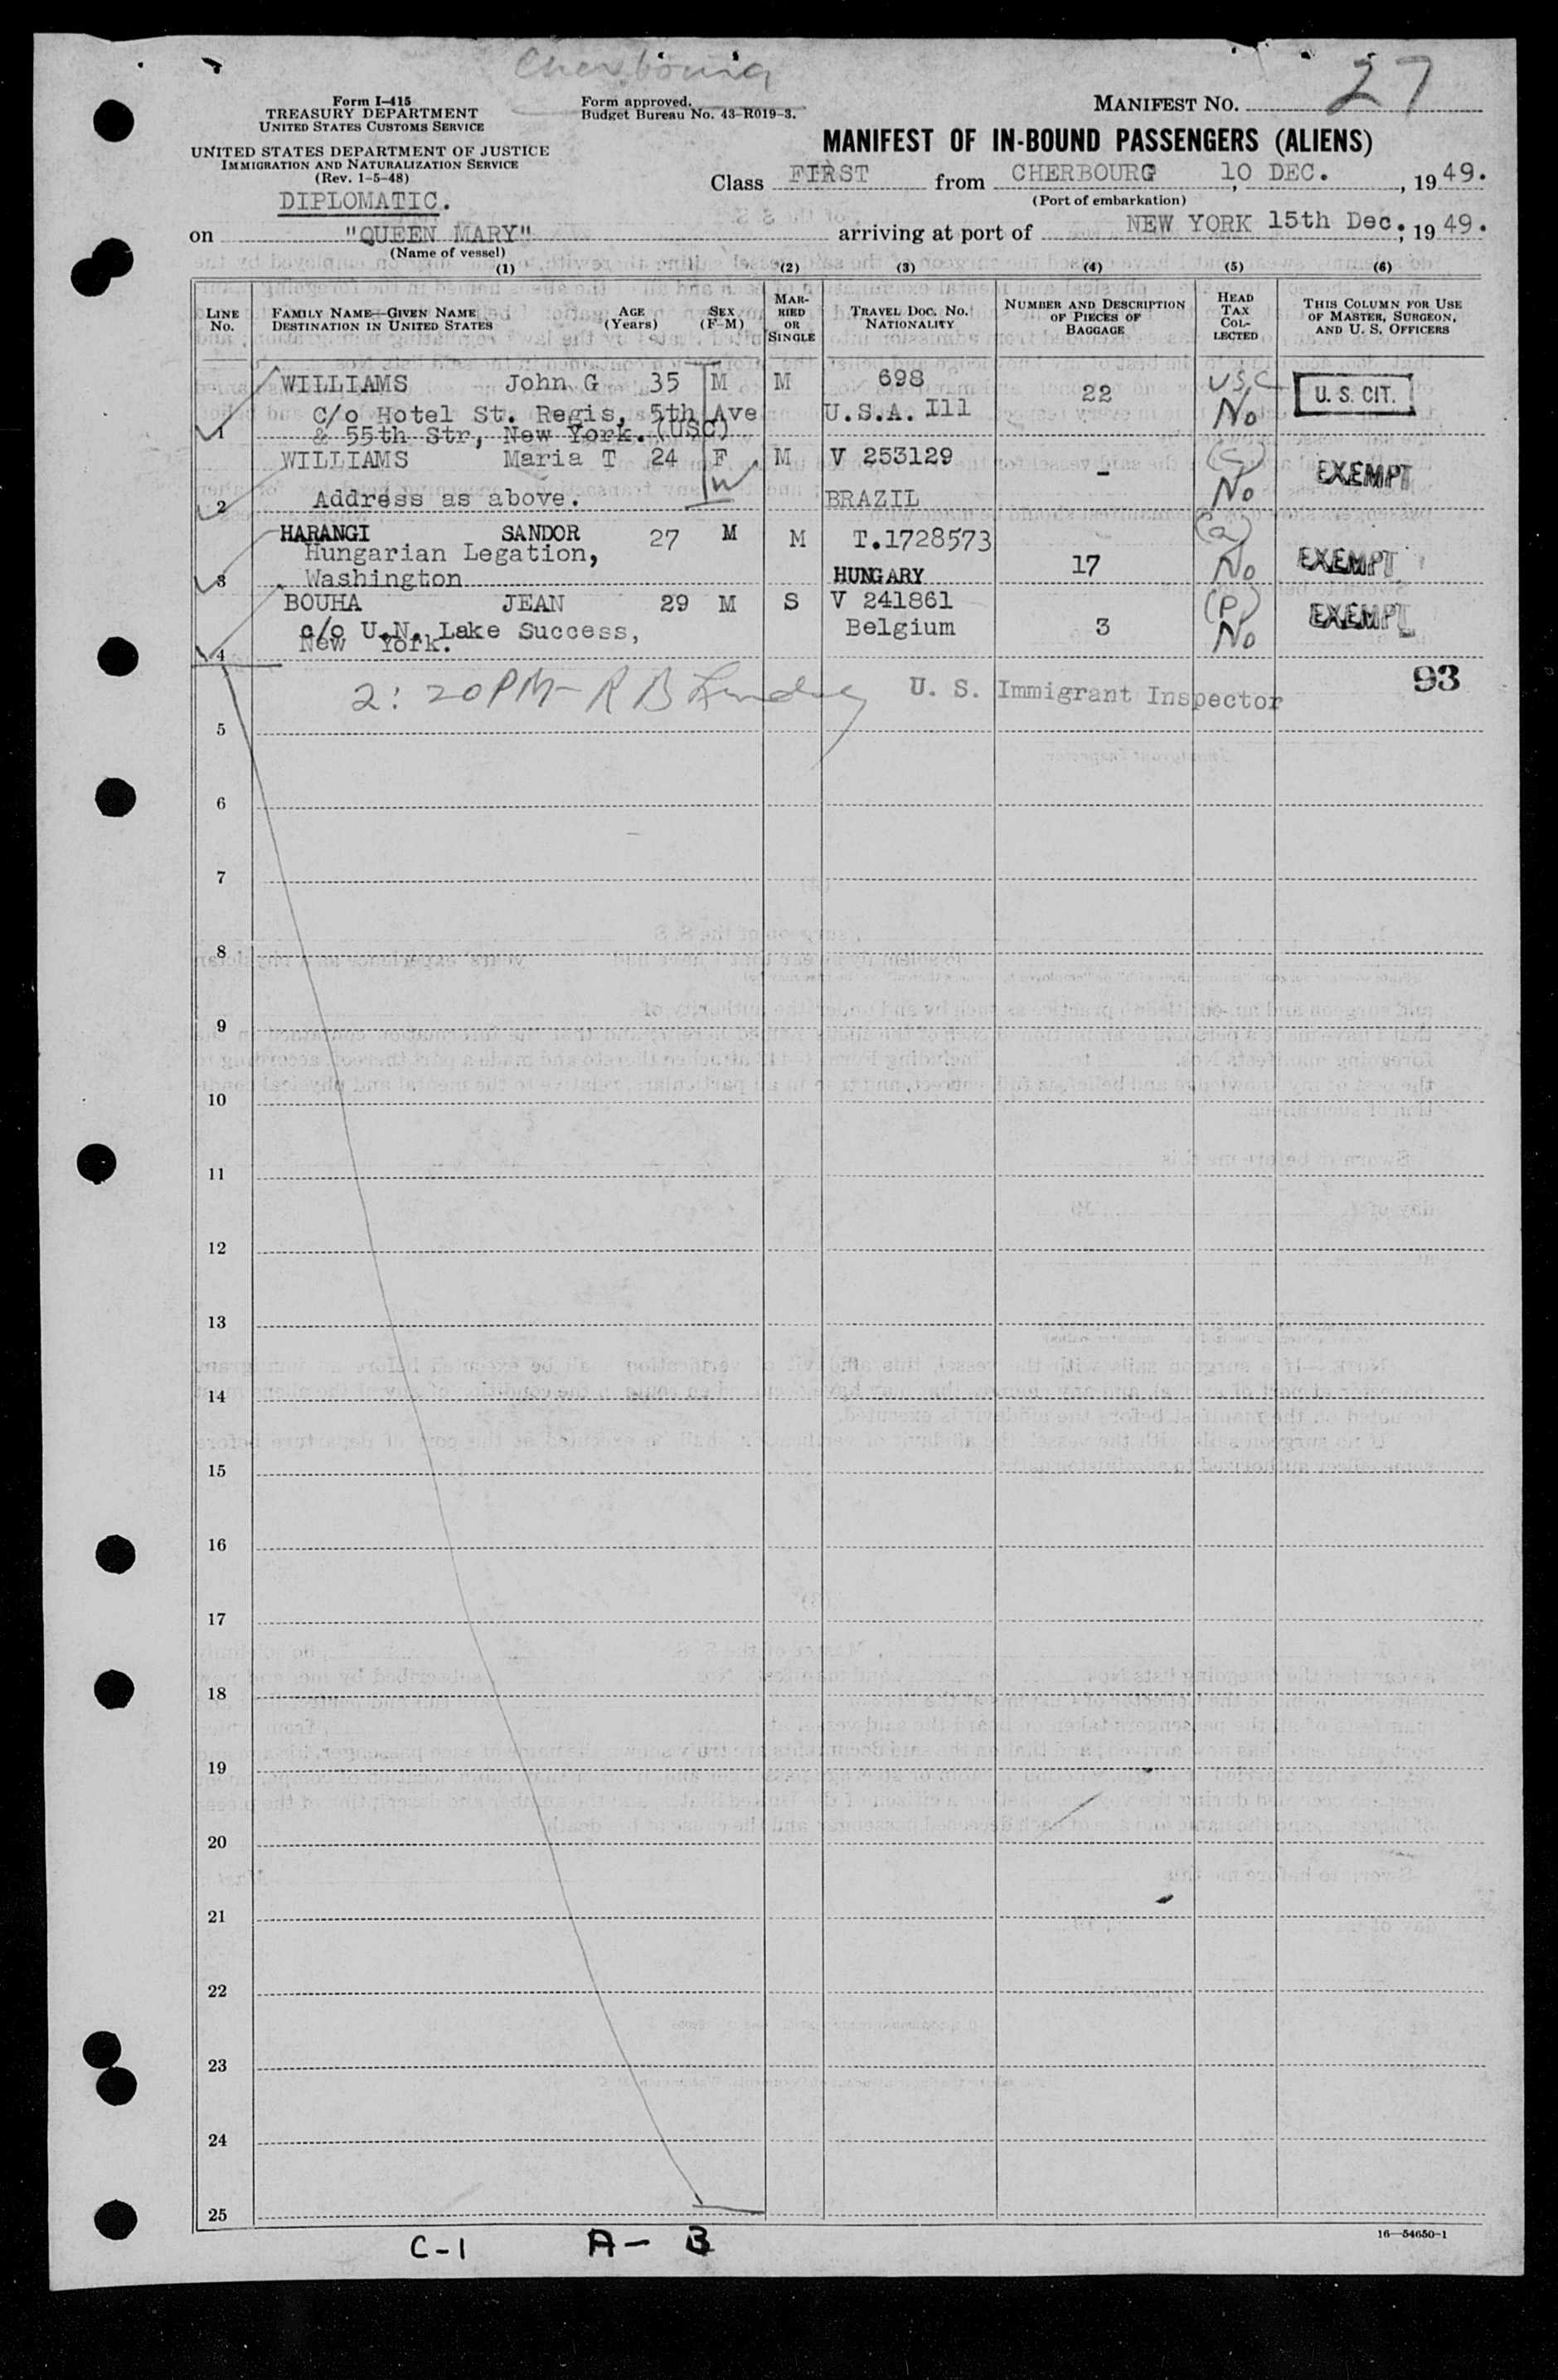 Cherbourg
27
Form I-415
TREASURY DEPARTMENT
UNITED STATES CUSTOMS SERVICE
UNITED STATES DEPARTMENT OF JUSTICE
IMMIGRATION AND NATURALIZATION SERVICE
(Rev. 1-5-48)
Form approved.
Budget Bureau No. 43-R019-3.
MANIFEST NO.
MANIFEST OF IN-BOUND PASSENGERS (ALIENS)
Class FIRST from CHERBOURG 10 DEC., 1949.
(Port of embarkation)
DIPLOMATIC.
on "QUEEN MARY" arriving at port of NEW YORK 15th Dec., 1949.
(Name of vessel)
(1) (2) (3) (4) (5) (6)
LINE NO.
FAMILY NAME—GIVEN NAME
DESTINATION IN UNITED STATES
AGE (Years)
SEX (F-M)
MARRIED OR SINGLE
TRAVEL DOC. NO.
NATIONALITY
NUMBER AND DESCRIPTION OF PIECES OF BAGGAGE
HEAD TAX COLLECTED
THIS COLUMN FOR USE OF MASTER, SURGEON, AND U. S. OFFICERS
WILLIAMS John G 35 M M 698 22 USC U. S. CIT.
C/o Hotel St. Regis, 5th Ave U.S.A. Ill No
1 & 55th Str, New York. (USC)
WILLIAMS Maria T 24 F M V 253129 - (C) EXEMPT
W
2 Address as above. BRAZIL No
HARANGI SANDOR 27 M M T.1728573 (a)
Hungarian Legation, 17 No EXEMPT
3 Washington HUNGARY
BOUHA JEAN 29 M S V 241861 (P) EXEMPT
c/o U.N. Lake Success, Belgium 3 No
4 New York.
2:20 PM - R B U. S. Immigrant Inspector 93
5
6
7
8
9
10
11
12
13
14
15
16
17
18
19
20
21
22
23
24
25
16—54650-1
C-1 A- B